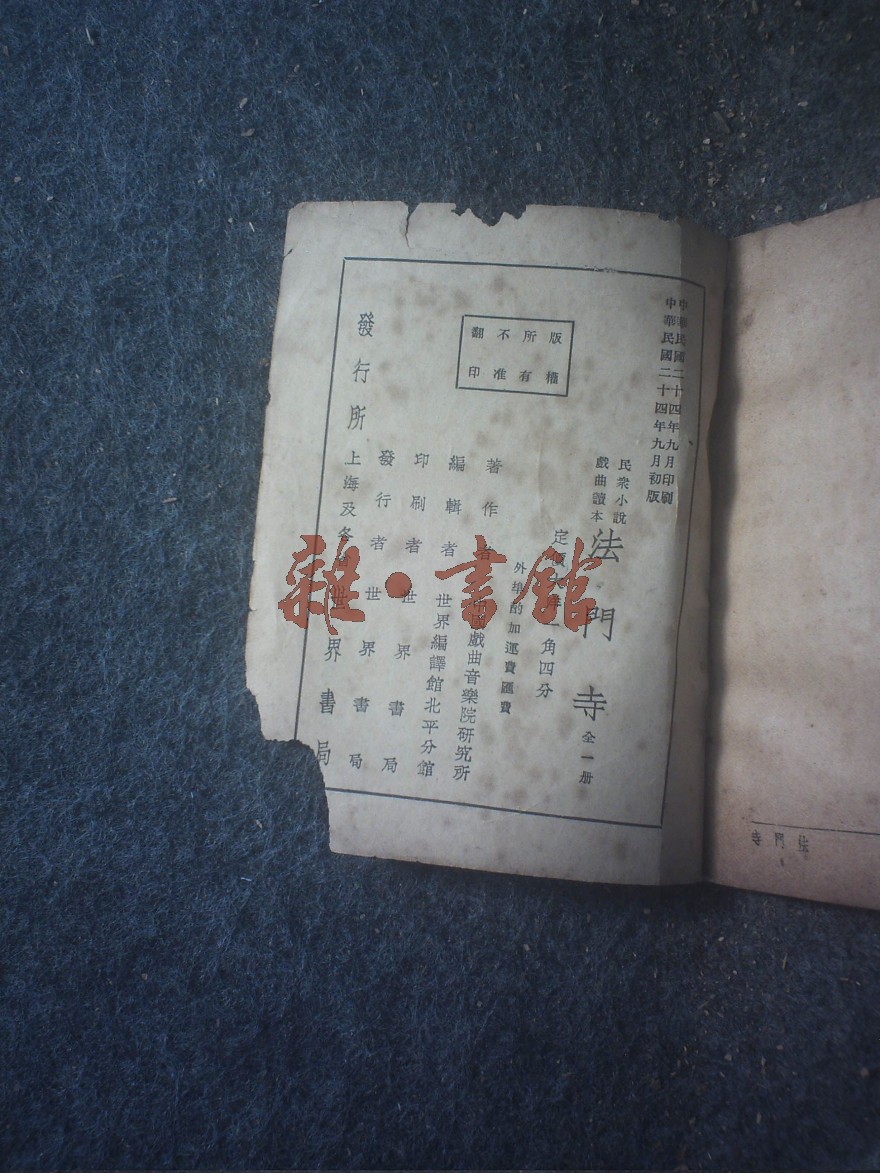 中華民國二十四年九月印刷
中華民國二十四年九月初版
民衆小說
戲曲讀本
法門寺 全一册
外埠酌加運費匯費
版權所有
不准翻印
著作者 戲曲音樂院研究所
編輯者 世界編譯館北平分館
印刷者 世界書局
發行者 世界書局
發行所 上海及各 世界書局
雜·書館
法門寺